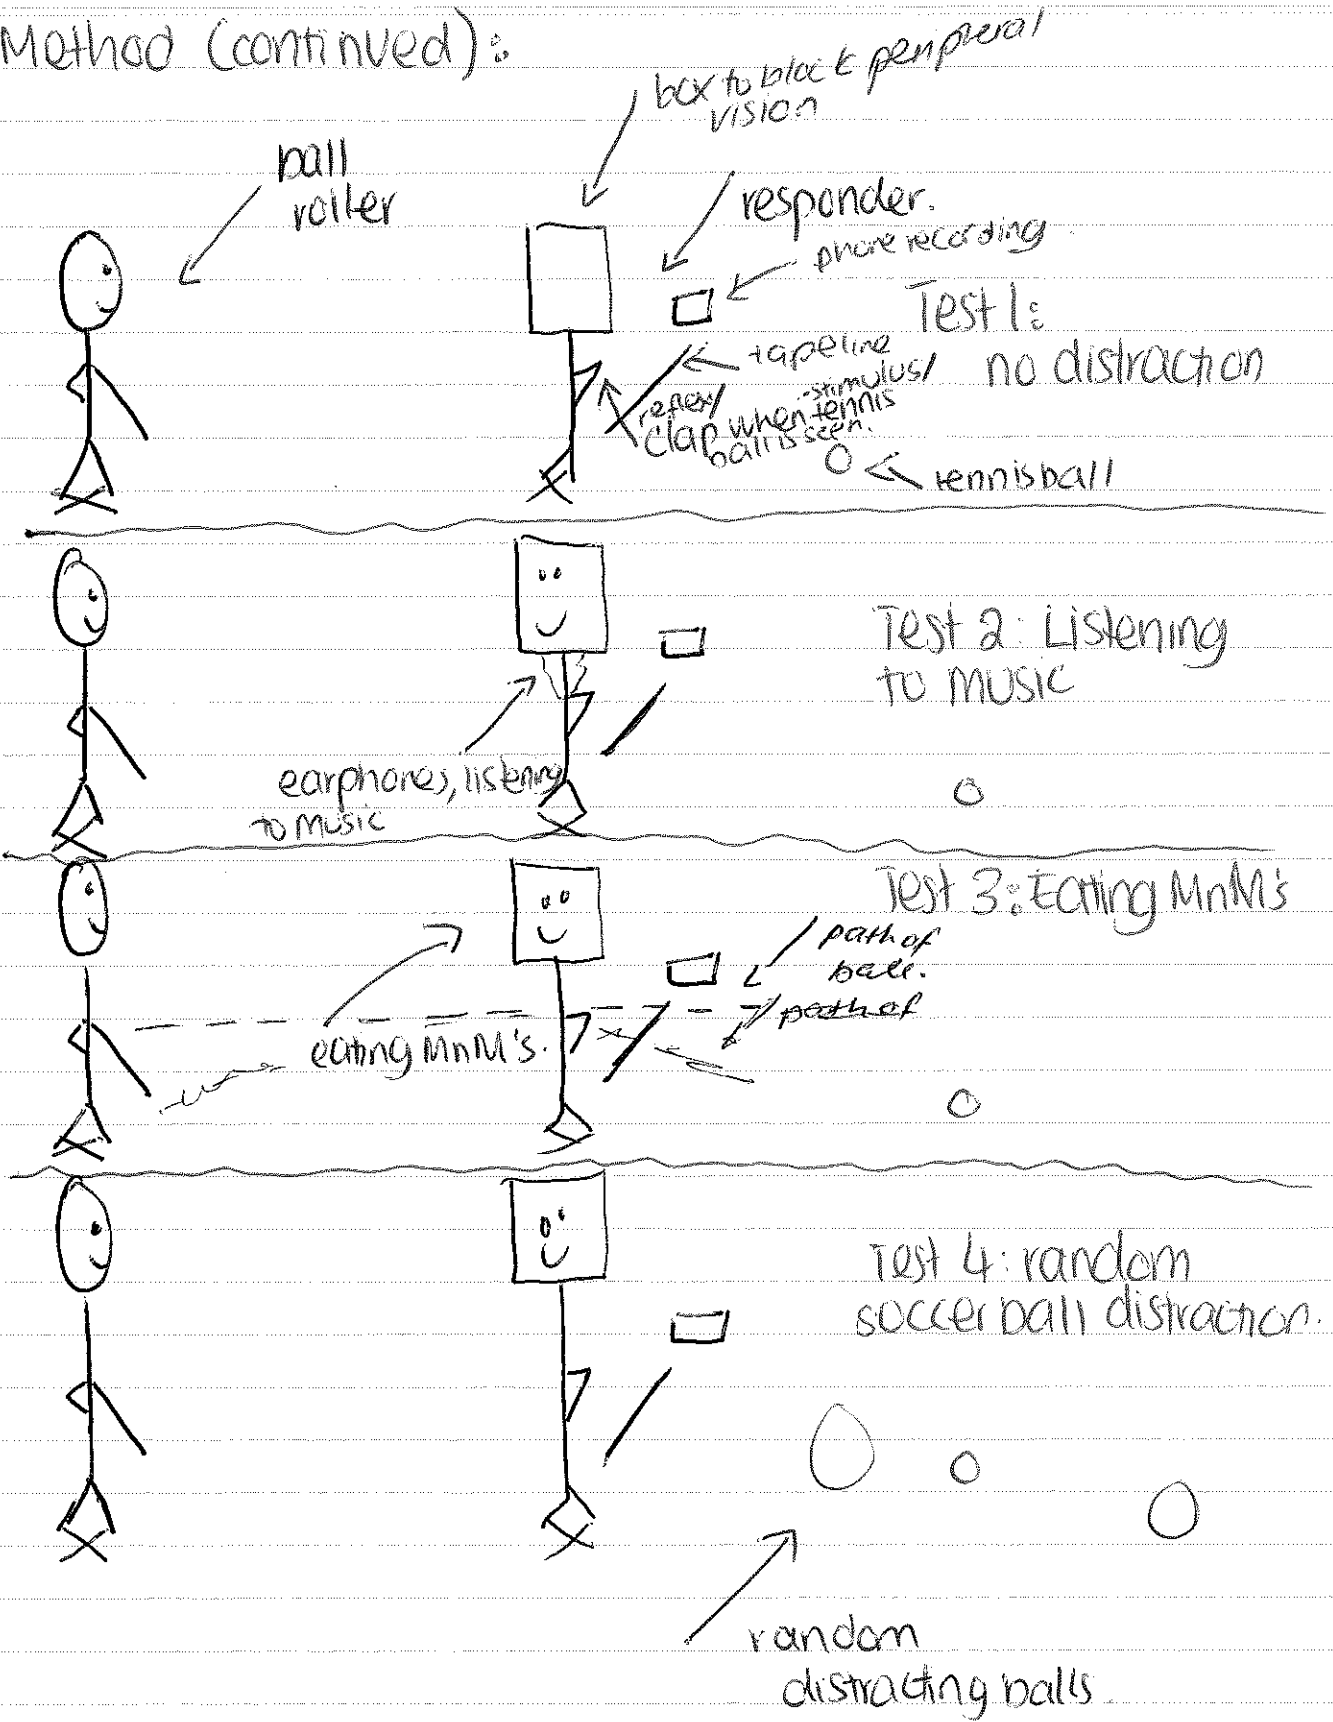 Method (continued):
box to block peripheral
vision
ball
roller
responder.
phone recording
Test 1:
no distraction
tapeline
reflex/
-stimulus/
clap when tennis
ball is seen.
tennis ball
Test 2: Listening
to music
earphones, listening
to music
Test 3: Eating MnM's
path of
ball.
path of
eating MnM's.
Test 4: random
soccer ball distraction.
random
distracting balls